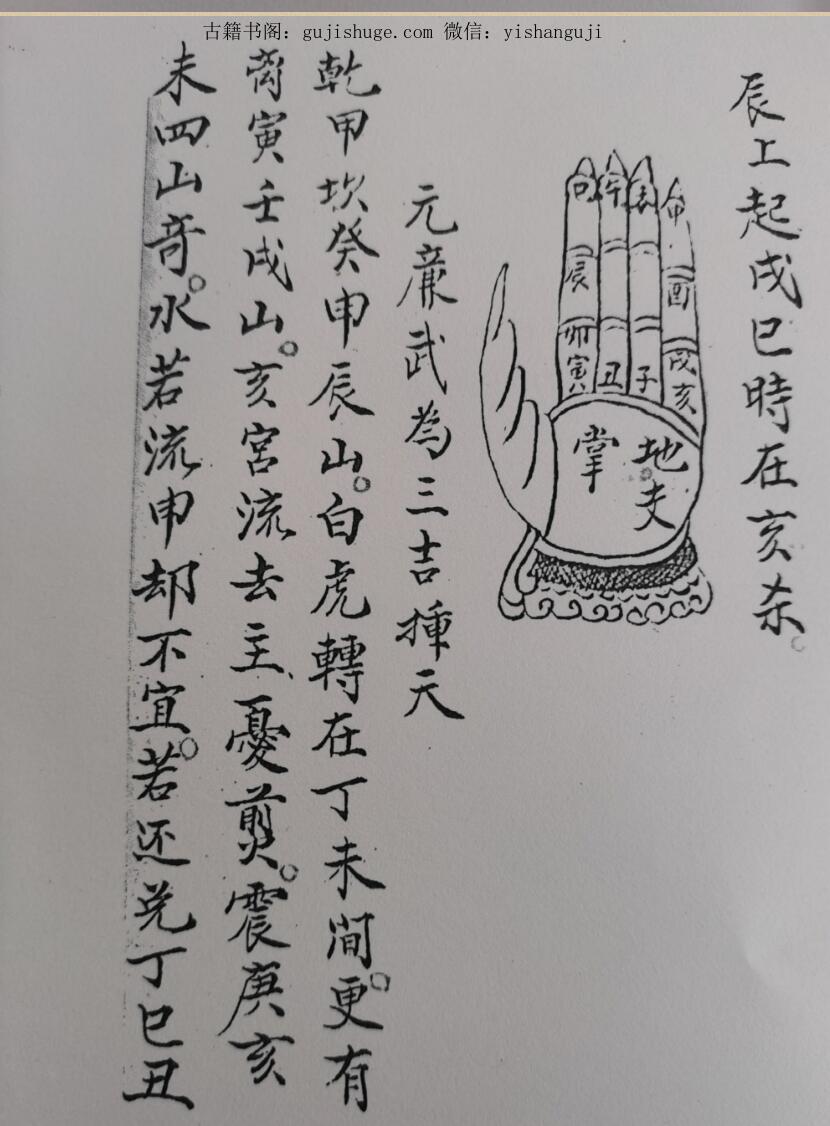 古籍书阁：gujishuge.com 微信：yishanguji
辰上起戌巳時在亥杀。
巳 午 未 申
辰 酉
卯 寅 丑 子 戌 亥
地夫
掌
元廉武為三吉捶天
乾甲坎癸申辰山。白虎轉在丁未間。更有
离寅壬戌山。亥宮流去主憂煎。震庚亥
未四山奇。水若流申却不宜。若还兑丁巳丑